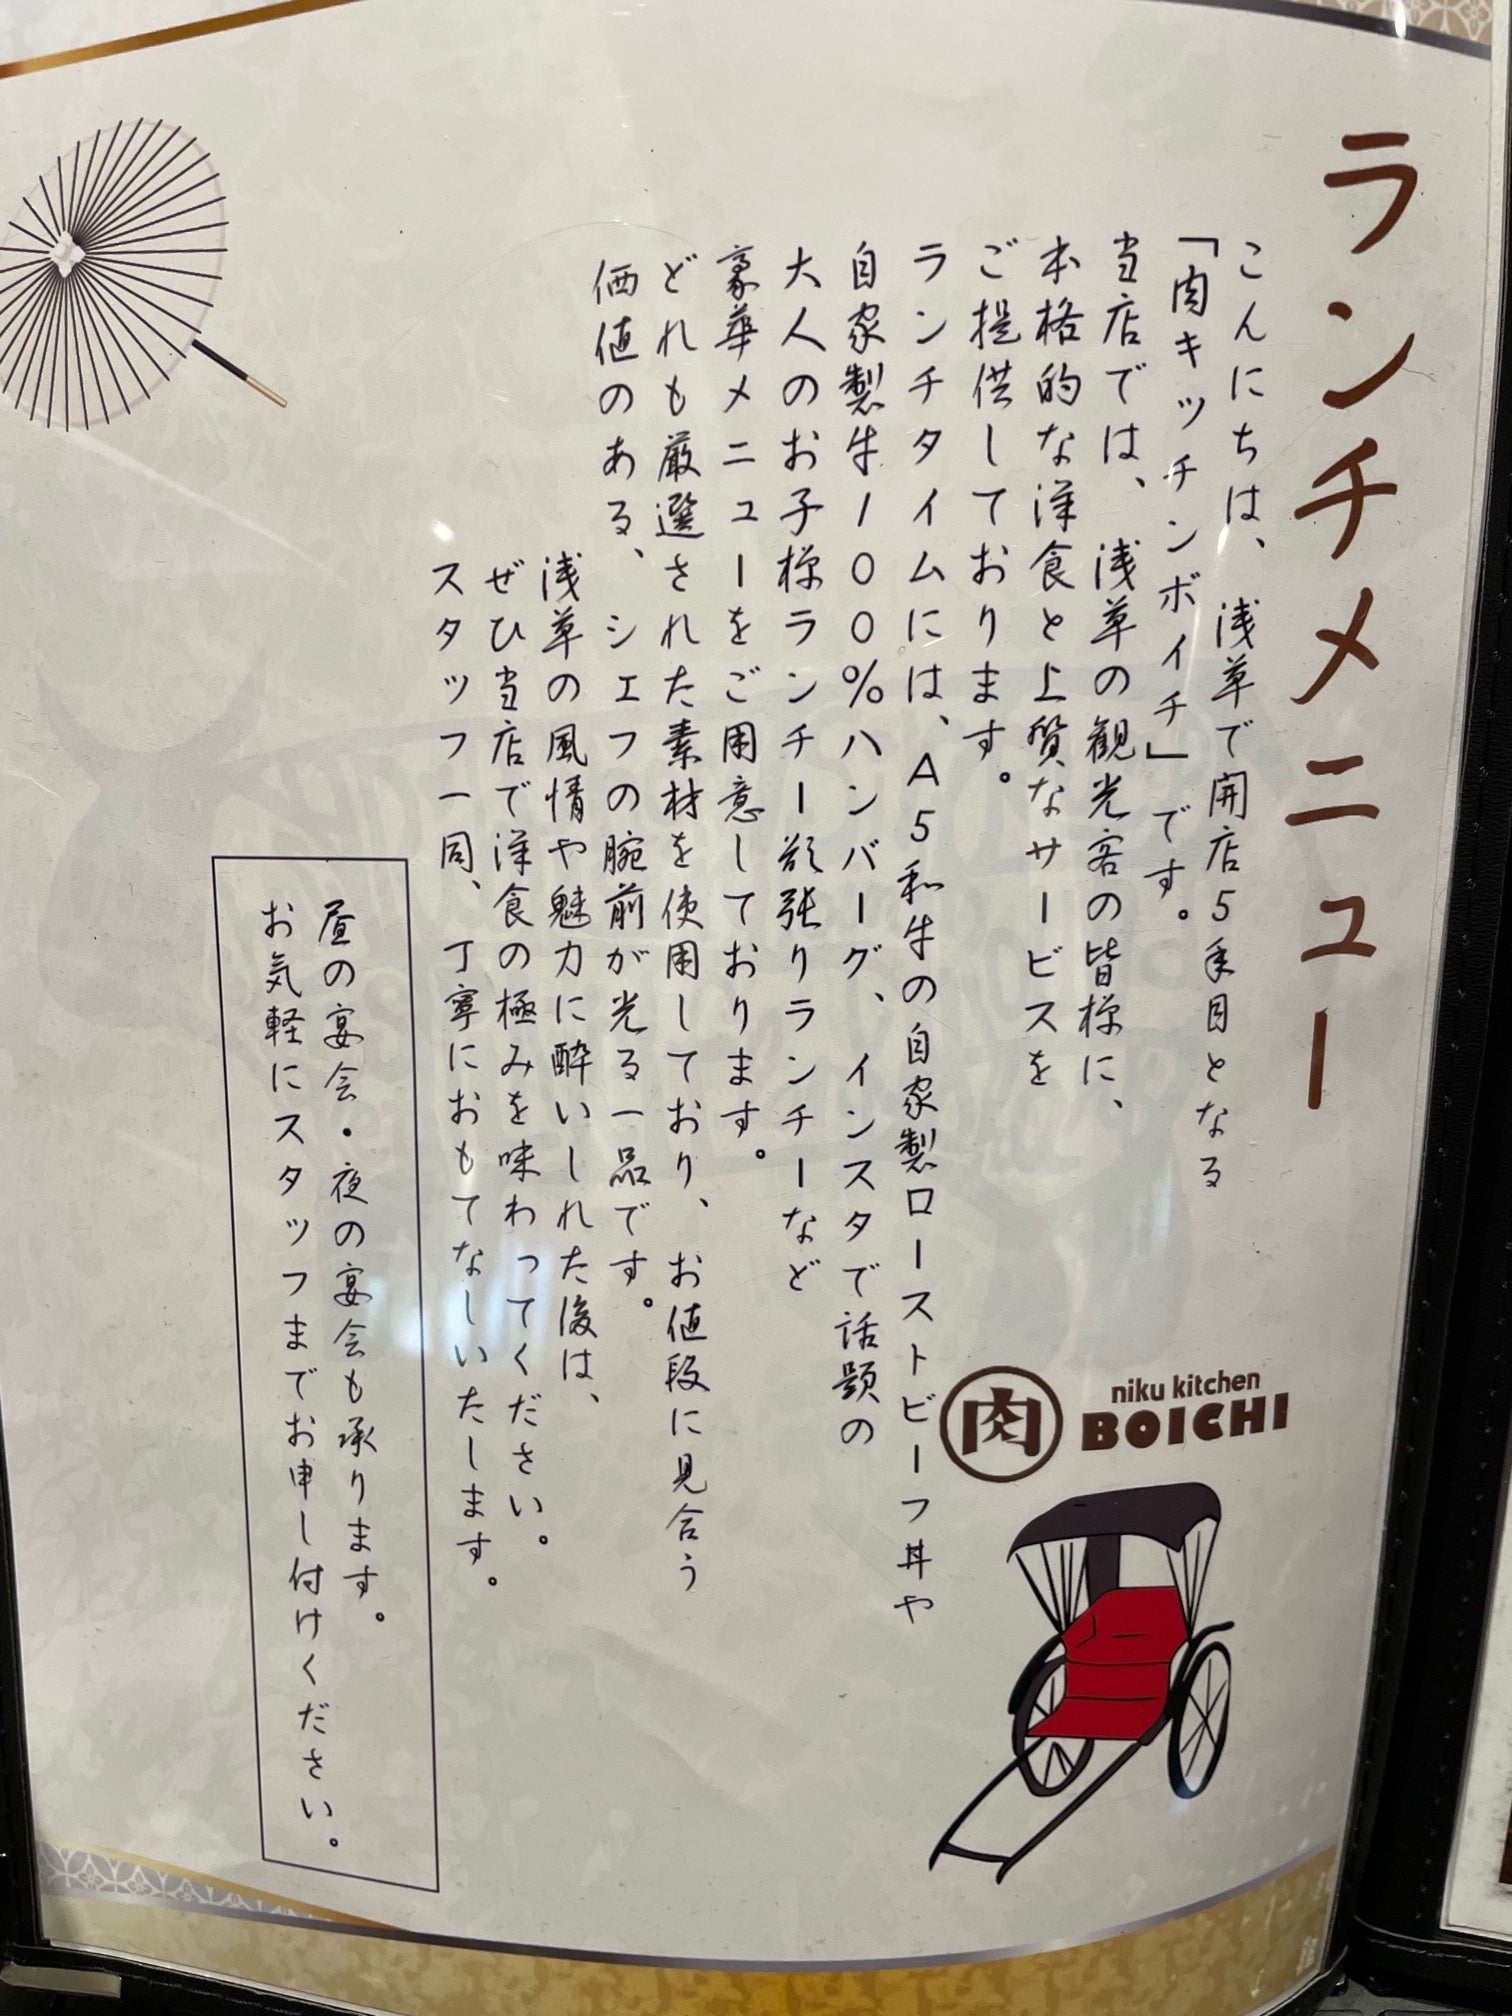 ランチメニュー
こんにちは、浅草で開店5年目となる
「肉キッチンボイチ」です。
当店では、浅草の観光客の皆様に、
本格的な洋食と上質なサービスを
ご提供しております。
ランチタイムには、A5和牛の自家製ローストビーフ丼や
自家製牛100%ハンバーグ、インスタで話題の
大人のお子様ランチー欲張りランチーなど
豪華メニューをご用意しております。
どれも厳選された素材を使用しており、お値段に見合う
価値のある、シェフの腕前が光る一品です。
浅草の風情や魅力に酔いしれた後は、
ぜひ当店で洋食の極みを味わってください。
スタッフ一同、丁寧におもてなしいたします。
昼の宴会・夜の宴会も承ります。
お気軽にスタッフまでお申し付けください。
肉
niku kitchen
BOICHI